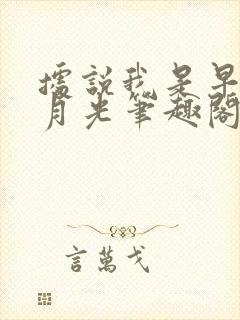 據說我是早
月光筆趣閣
言萬戈